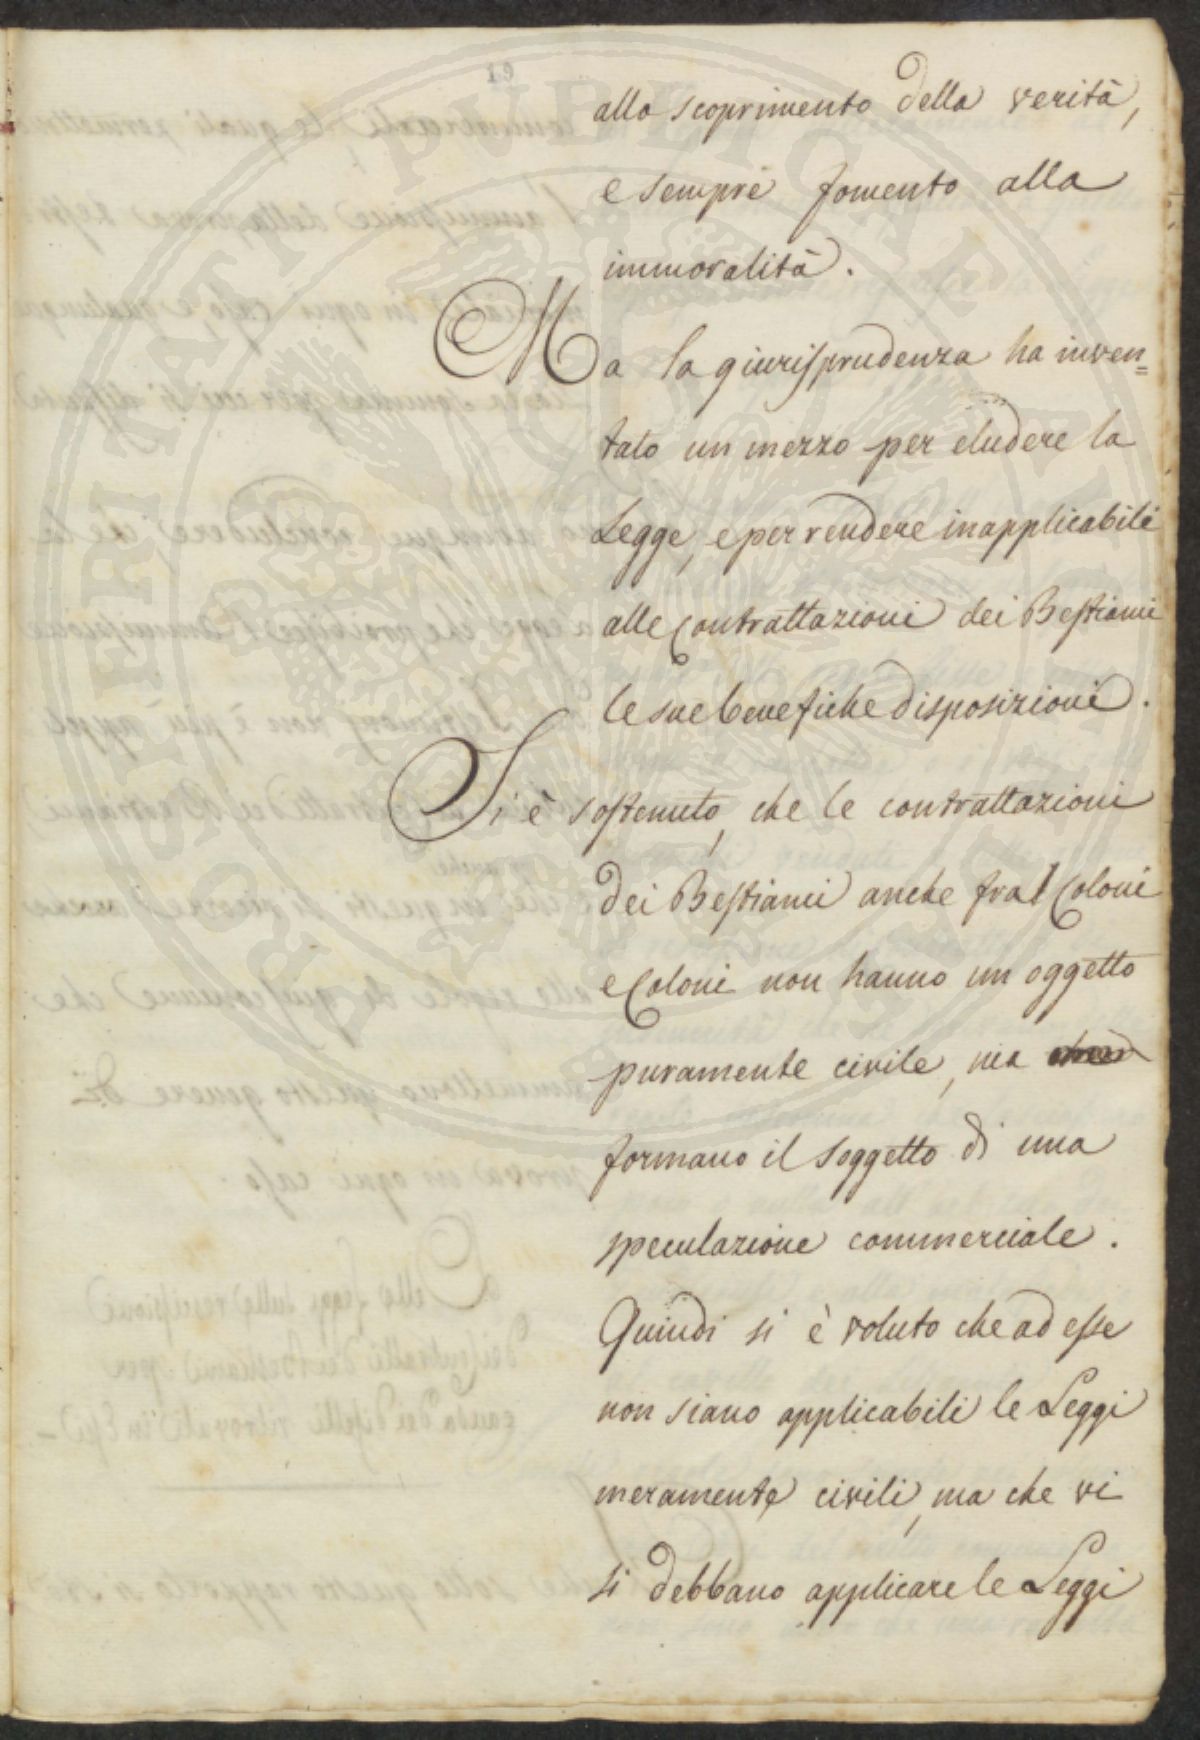 19
allo scoprimento della verità,
e sempre fomento alla
immoralità.
Ma la giurisprudenza ha inven=
tato un mezzo per eludere la
Legge, e per rendere inapplicabili
alle Contrattazioni dei Bestiami
le sue benefiche disposizioni.
Si è sostenuto, che le contrattazioni
dei Bestiami anche fra Coloni
e Coloni non hanno un oggetto
puramente civile, ma
formano il soggetto di una
speculazione commerciale.
Quindi si è voluto che ad esse
non siano applicabili le Leggi
meramente civili, ma che vi
si debbano applicare le Leggi